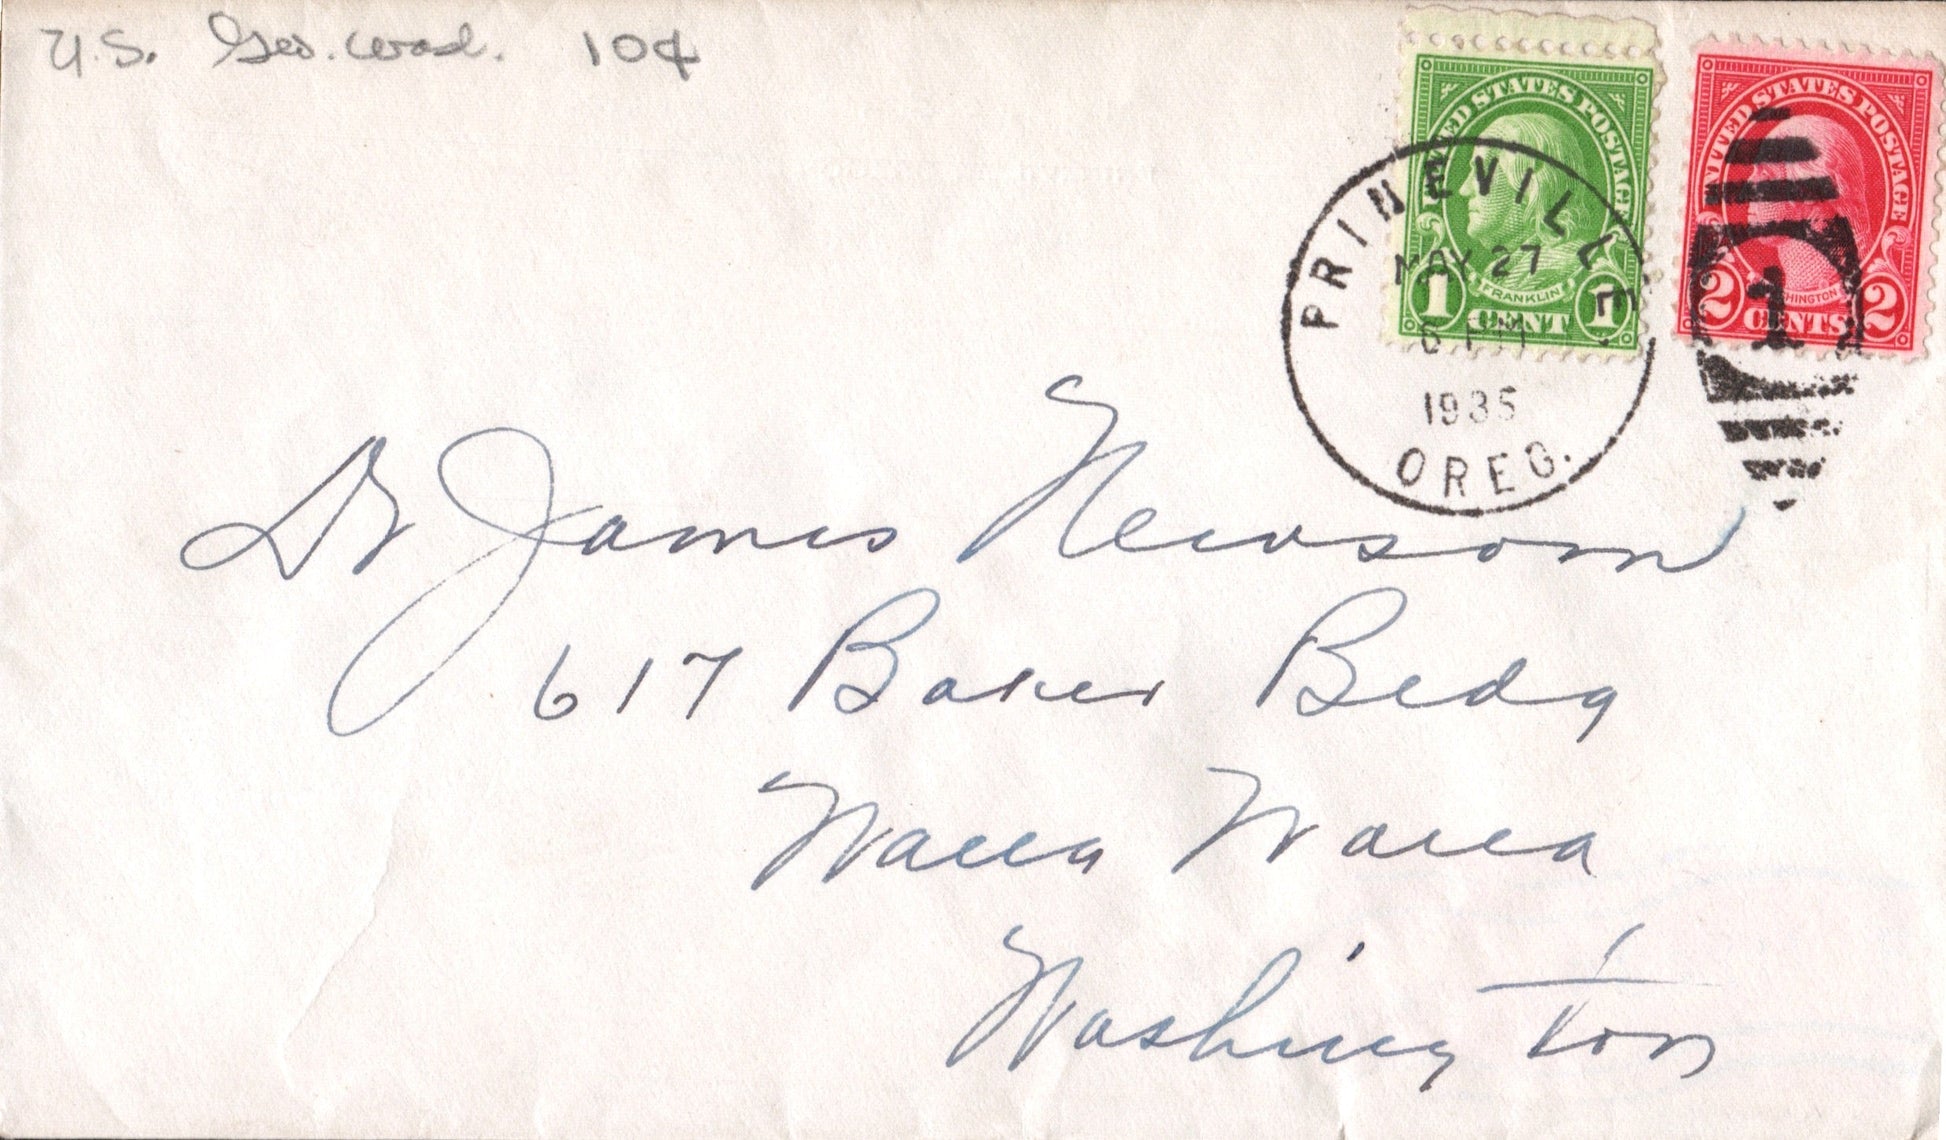 U.S. Geo. Wash. 10¢
UNITED STATES POSTAGE
FRANKLIN
1 CENT 1
UNITED STATES POSTAGE
WASHINGTON
2 CENTS 2
PRINEVILLE
MAY 27
6 PM
1935
OREG.
1
Dr James Newsom
617 Baker Bldg
Walla Walla
Washington